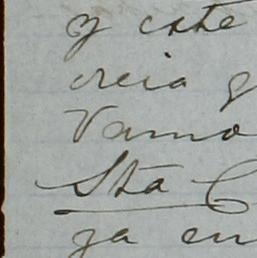 y este
creia q
Vamo
Sta C
ja en